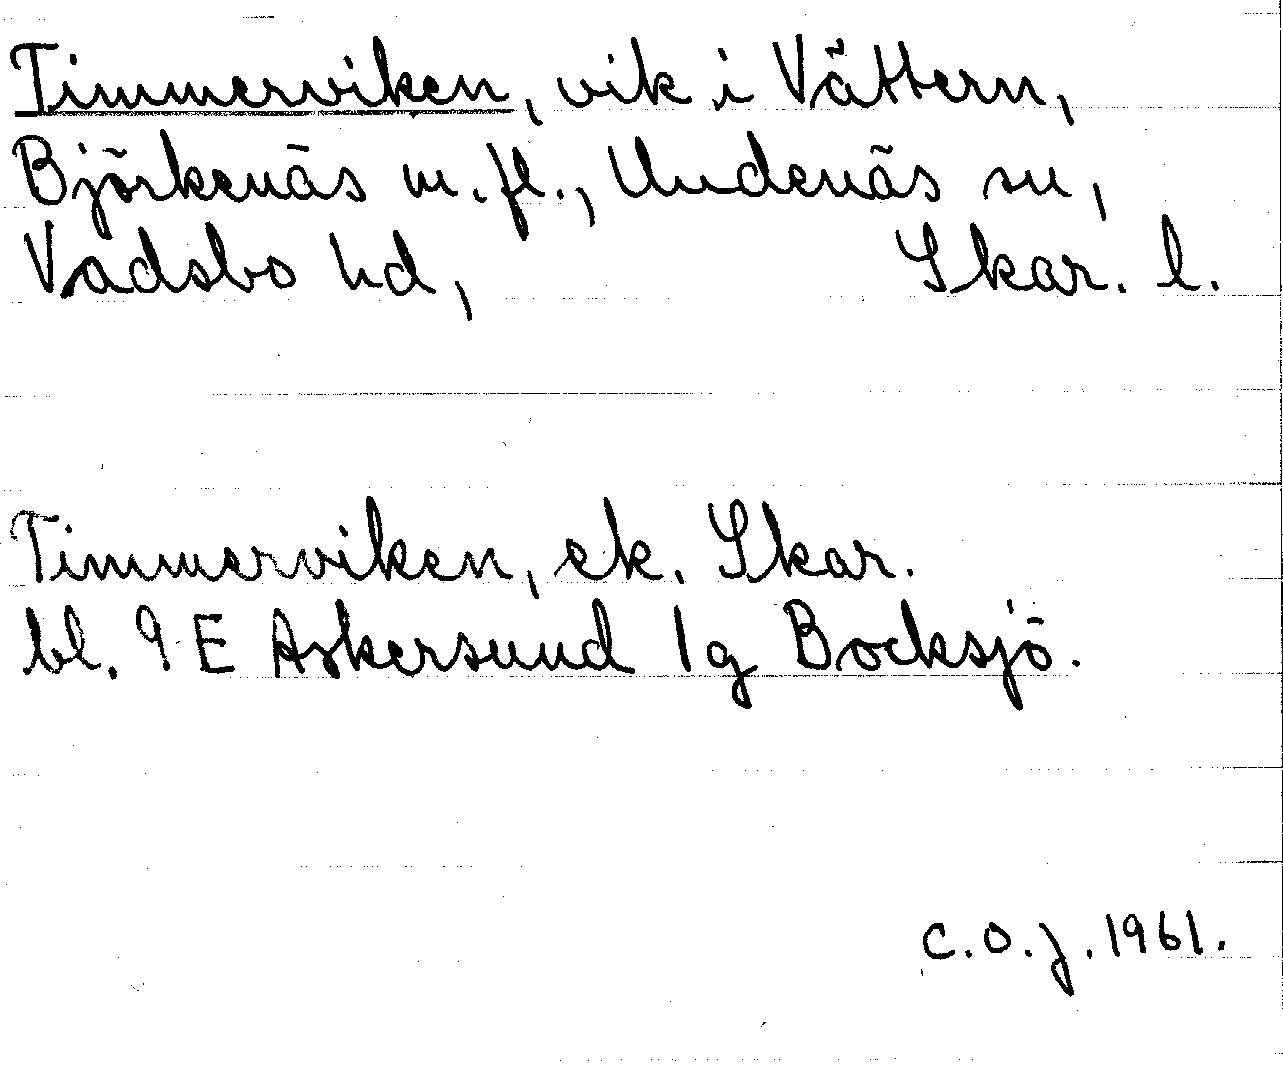 Timmerviken, vik i Vättern,
Björkenäs m.fl., Undenäs sn,
Vadsbo hd, Skar. l.
Timmerviken, ek. Skar.
bl. 9 E Askersund 1g Bocksjö.
C.O.J. 1961.